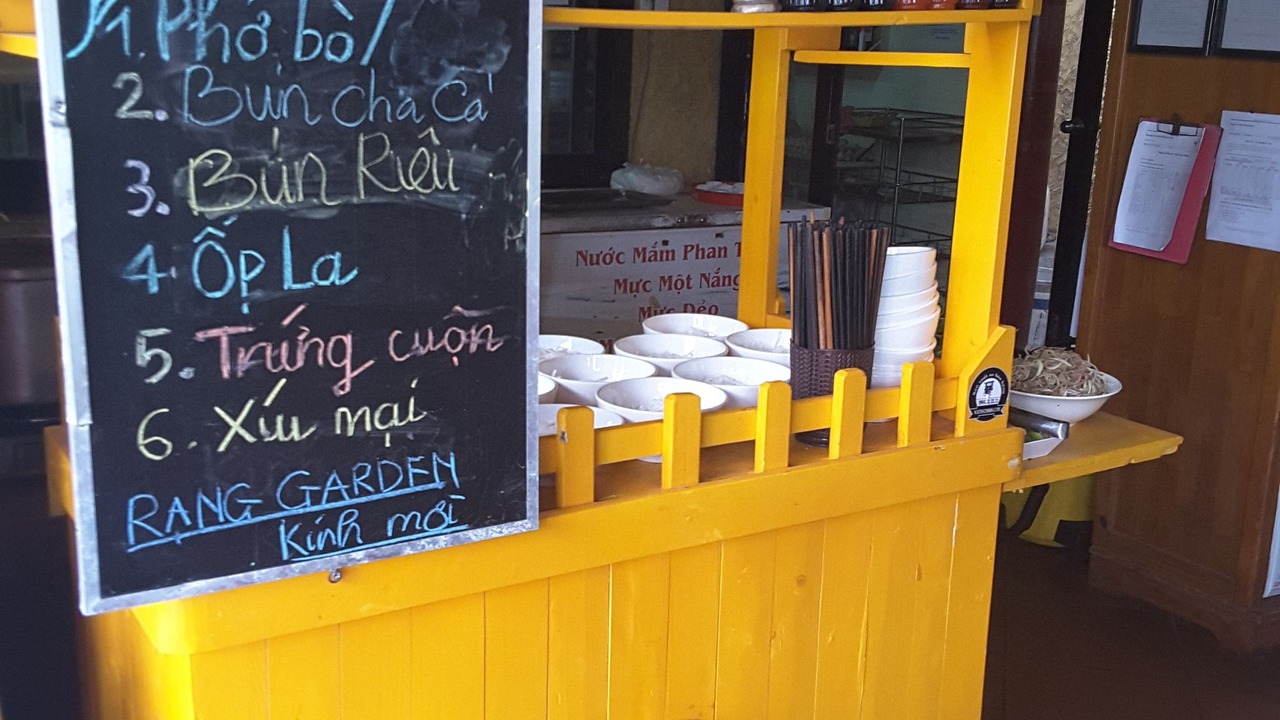 1. Phở bò/
2. Bún chả cá
3. Bún Riêu
4 Ốp La
5. Trứng cuộn
6. Xíu mại
RẠNG GARDEN
Kính mời
Nước Mắm Phan
Mực Một Nắng
Mực Dẻo